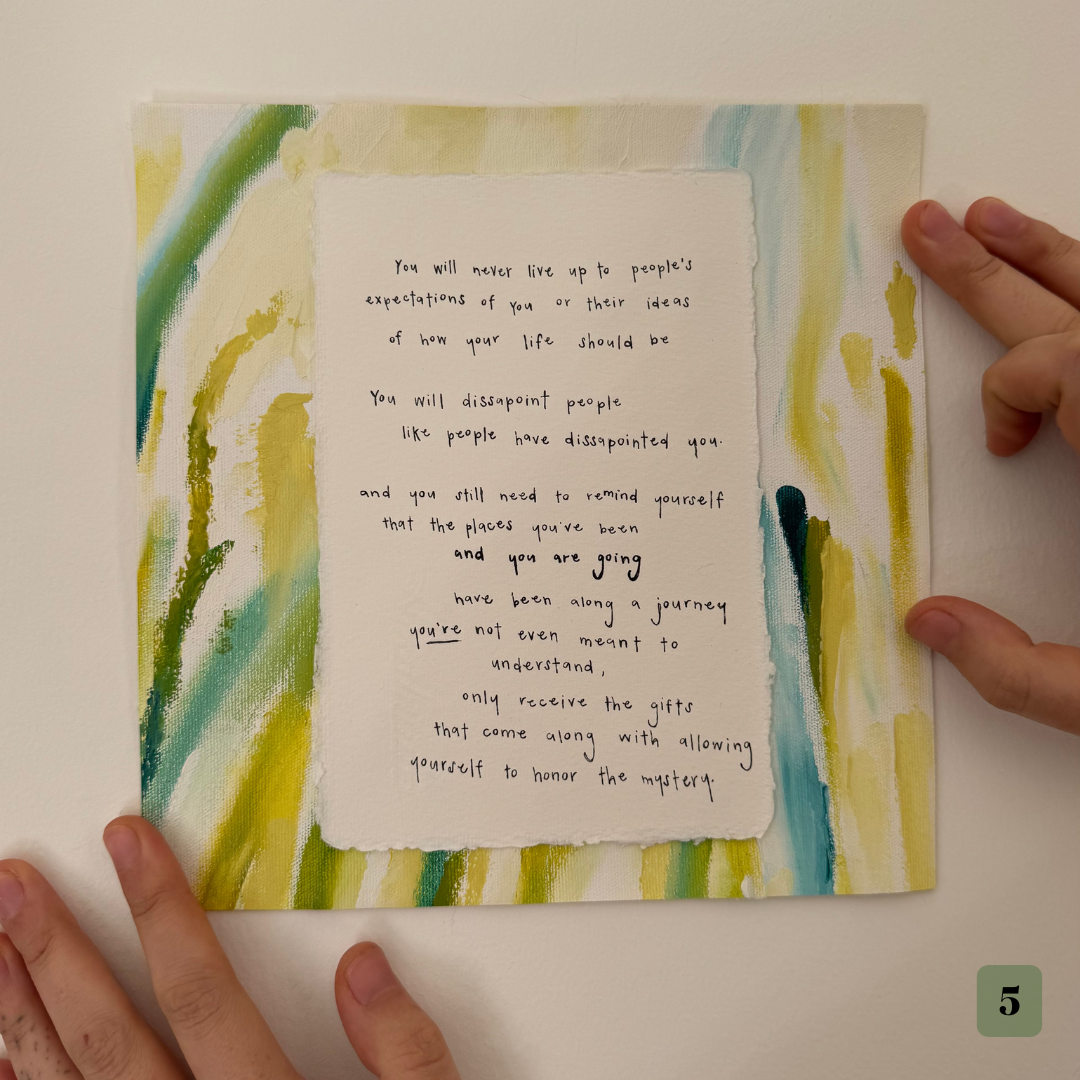 You will never live up to people's
expectations of you or their ideas
of how your life should be
You will dissapoint people
like people have dissapointed you.
and you still need to remind yourself
that the places you've been
and you are going
have been along a journey
you're not even meant to
understand,
only receive the gifts
that come along with allowing
yourself to honor the mystery.
5